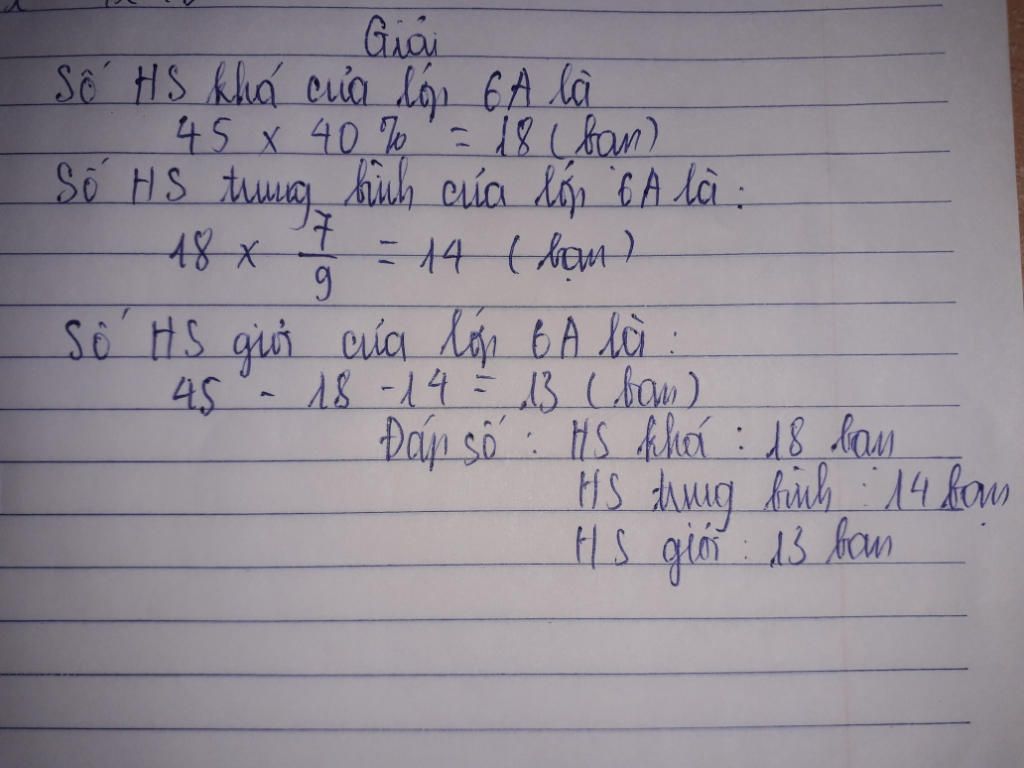 Giải
Số HS khá của lớp 6A là
45 x 40 % = 18 (bạn)
Số HS trung bình của lớp 6A là :
18 x 7/9 = 14 (bạn)
Số HS giỏi của lớp 6A là :
45 - 18 - 14 = 13 (bạn)
Đáp số : HS khá : 18 bạn
HS trung bình : 14 bạn
HS giỏi : 13 bạn